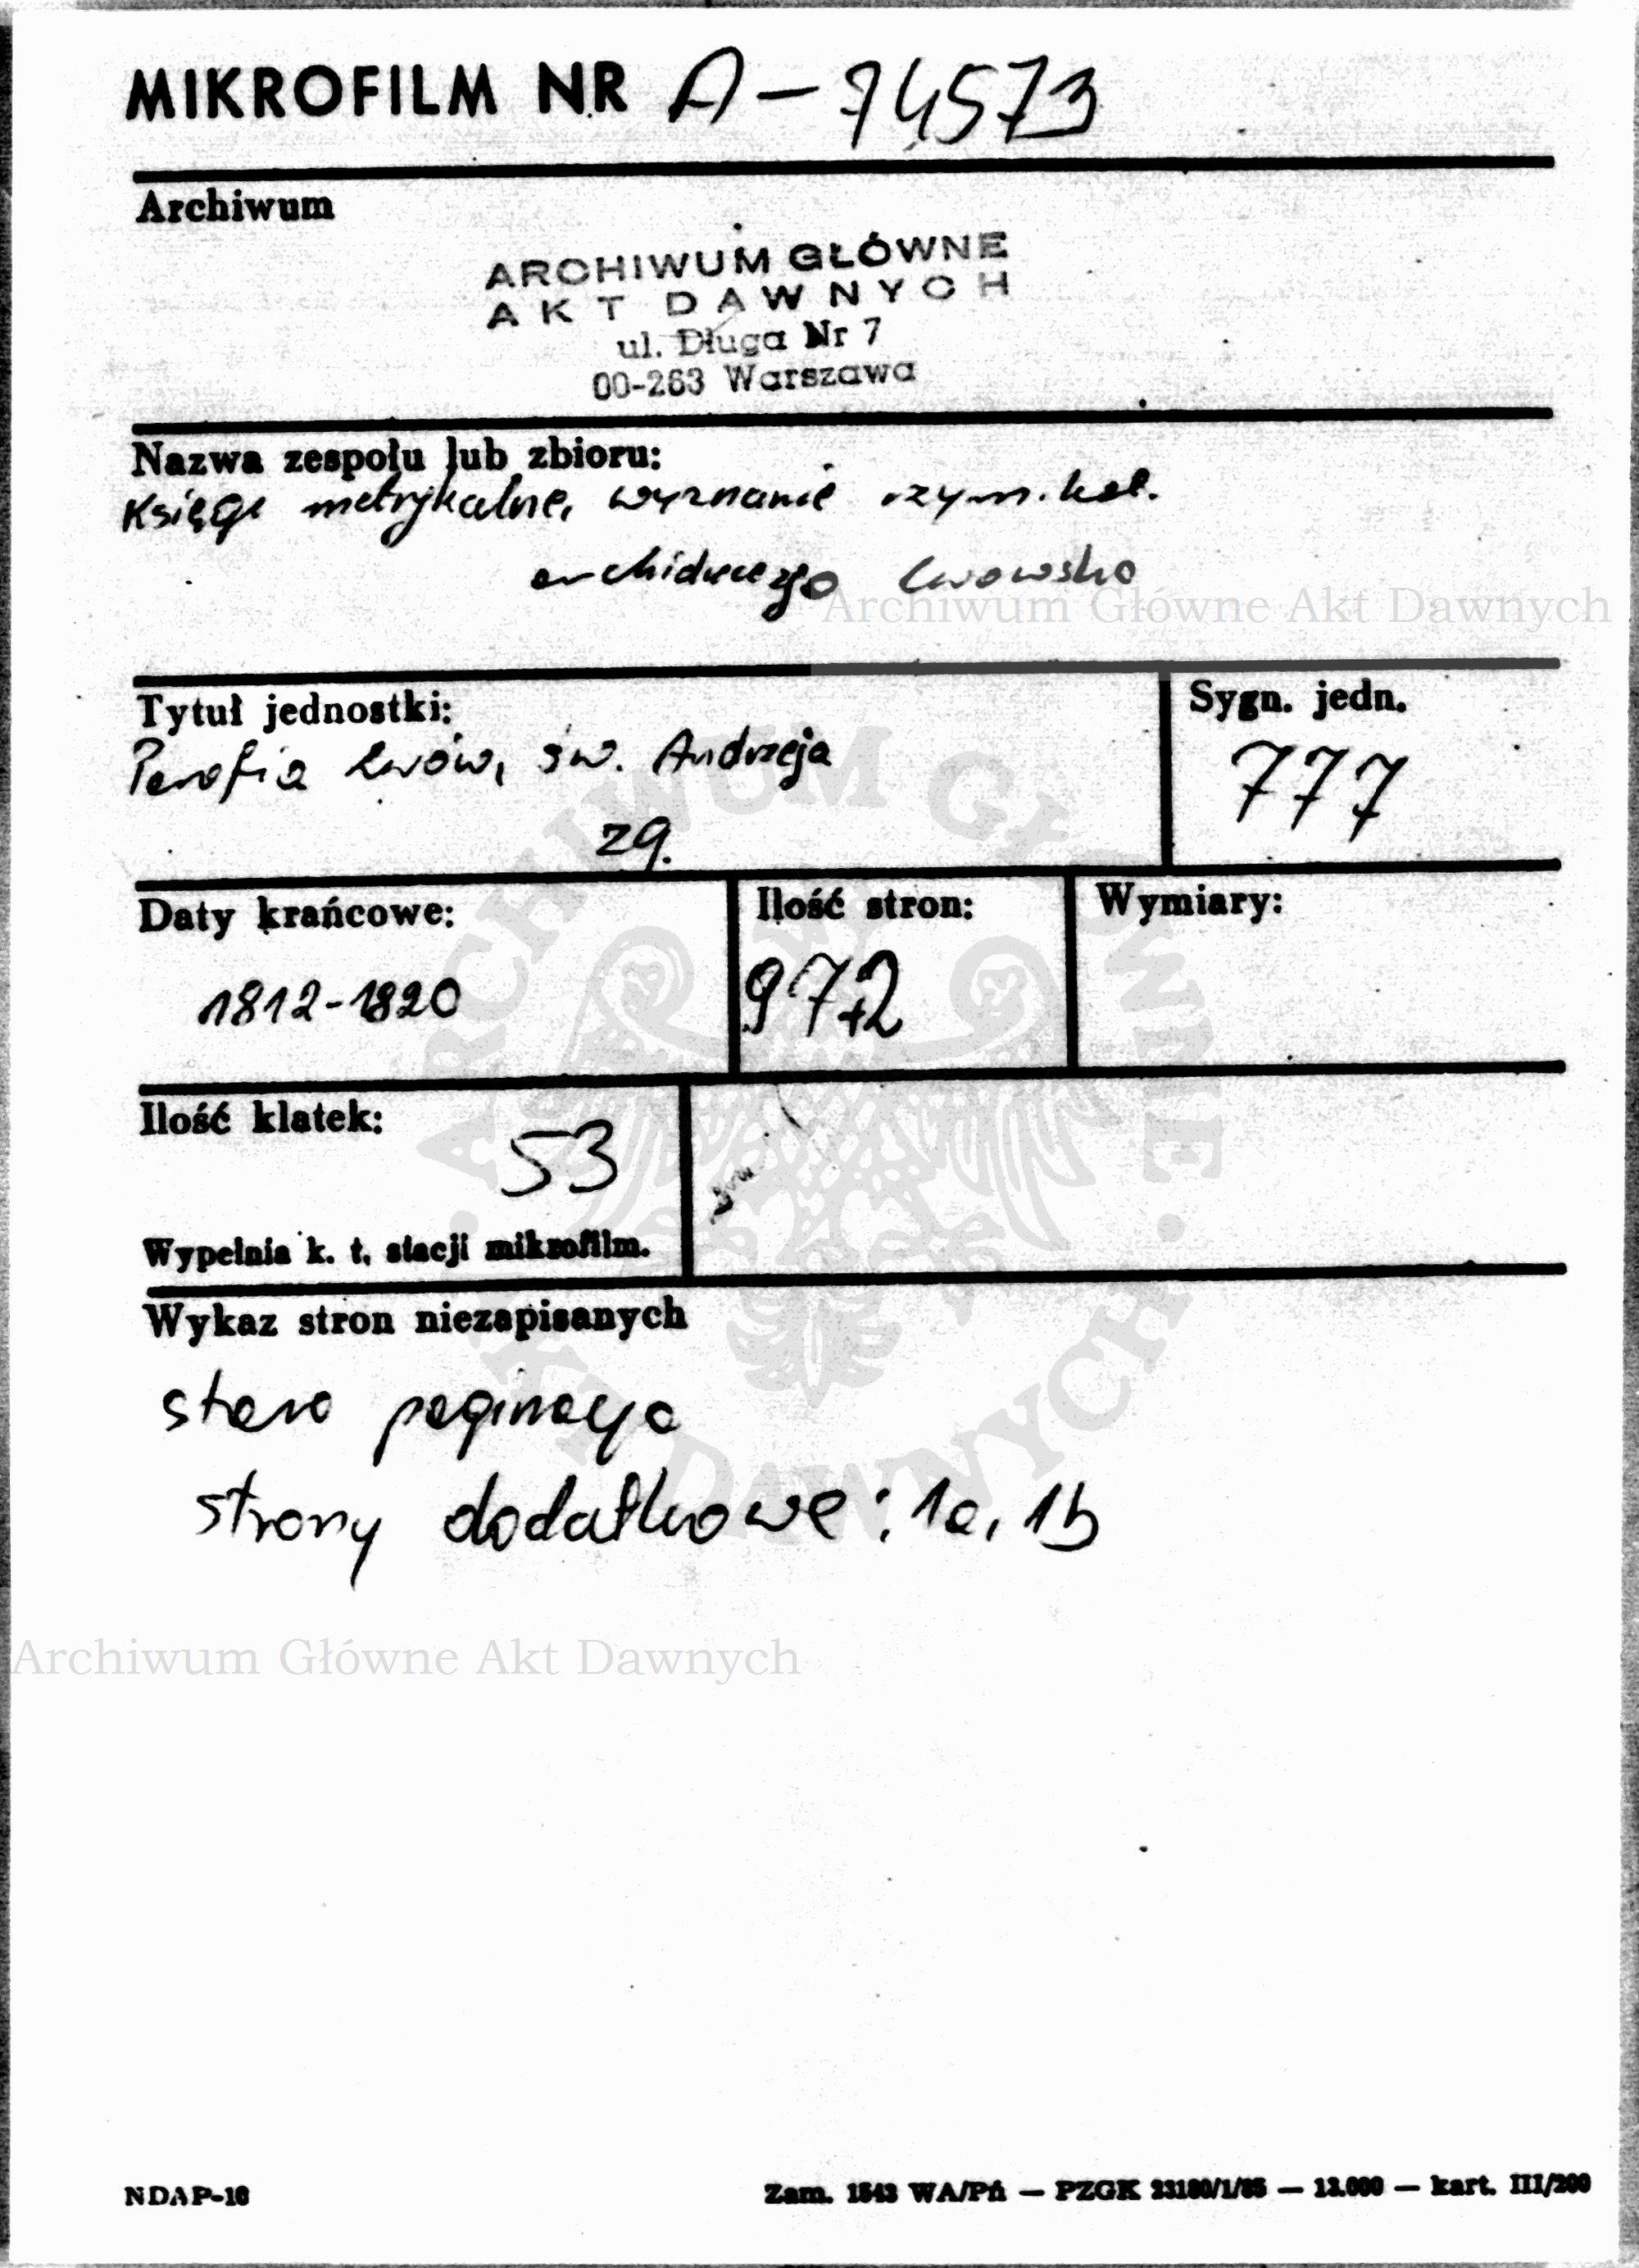 MIKROFILM NR A-74573
Archiwum
ARCHIWUM GŁÓWNE
AKT DAWNYCH
ul. Długa Nr 7
00-263 Warszawa
Nazwa zespołu lub zbioru:
Księgi metrykalne, wyznanie rzym. kat.
archidiecezja lwowska
Archiwum Główne Akt Dawnych
Tytuł jednostki:
Parafia Lwów, św. Andrzeja
zg.
Sygn. jedn.
777
Daty krańcowe:
1812-1820
Ilość stron:
97+2
Wymiary:
Ilość klatek:
53
Wypełnia k. t. stacji mikrofilm.
Wykaz stron niezapisanych
stara paginacja
strony dodatkowe: 1a, 1b
ARCHIWUM GŁÓWNE AKT DAWNYCH
Archiwum Główne Akt Dawnych
NDAP-16
Zam. 1543 WA/Pń — PZGK 23180/1/85 — 13.000 — kart. III/200